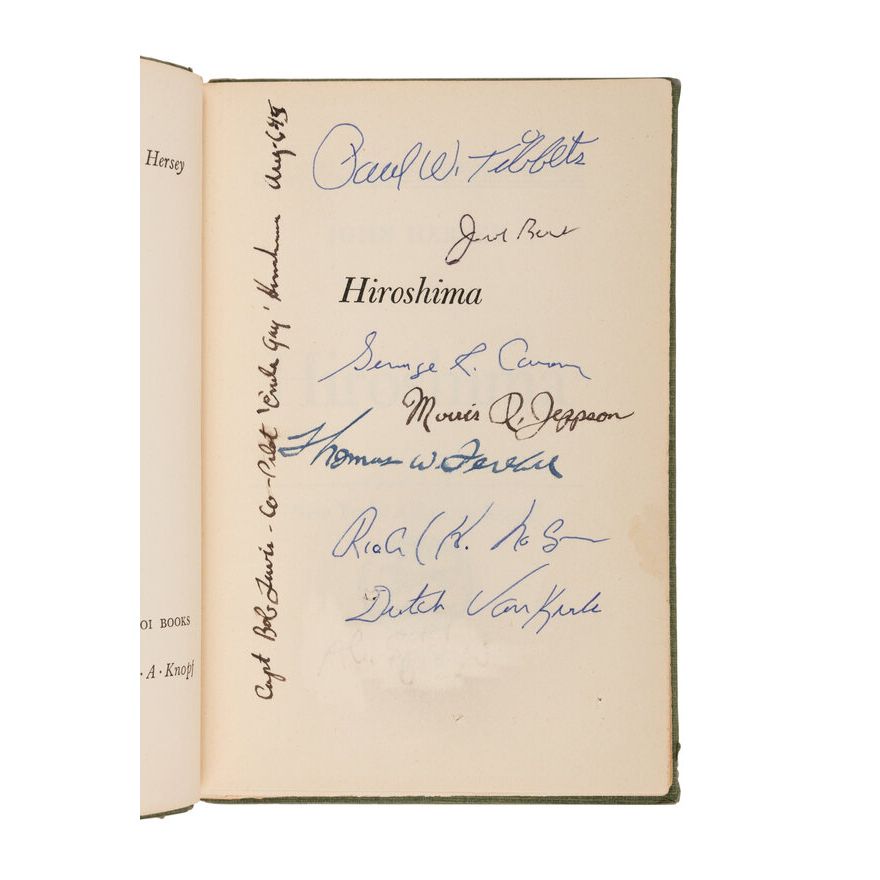 Hersey
OI BOOKS
· A · Knopf
Capt Bob Lewis - Co-Pilot 'Enola Gay' Hiroshima Aug-6-45
Paul W. Tibbets
Hiroshima
George R. Caron
Morris R. Jeppson
Thomas W. Ferebee
Dutch Van Kirk